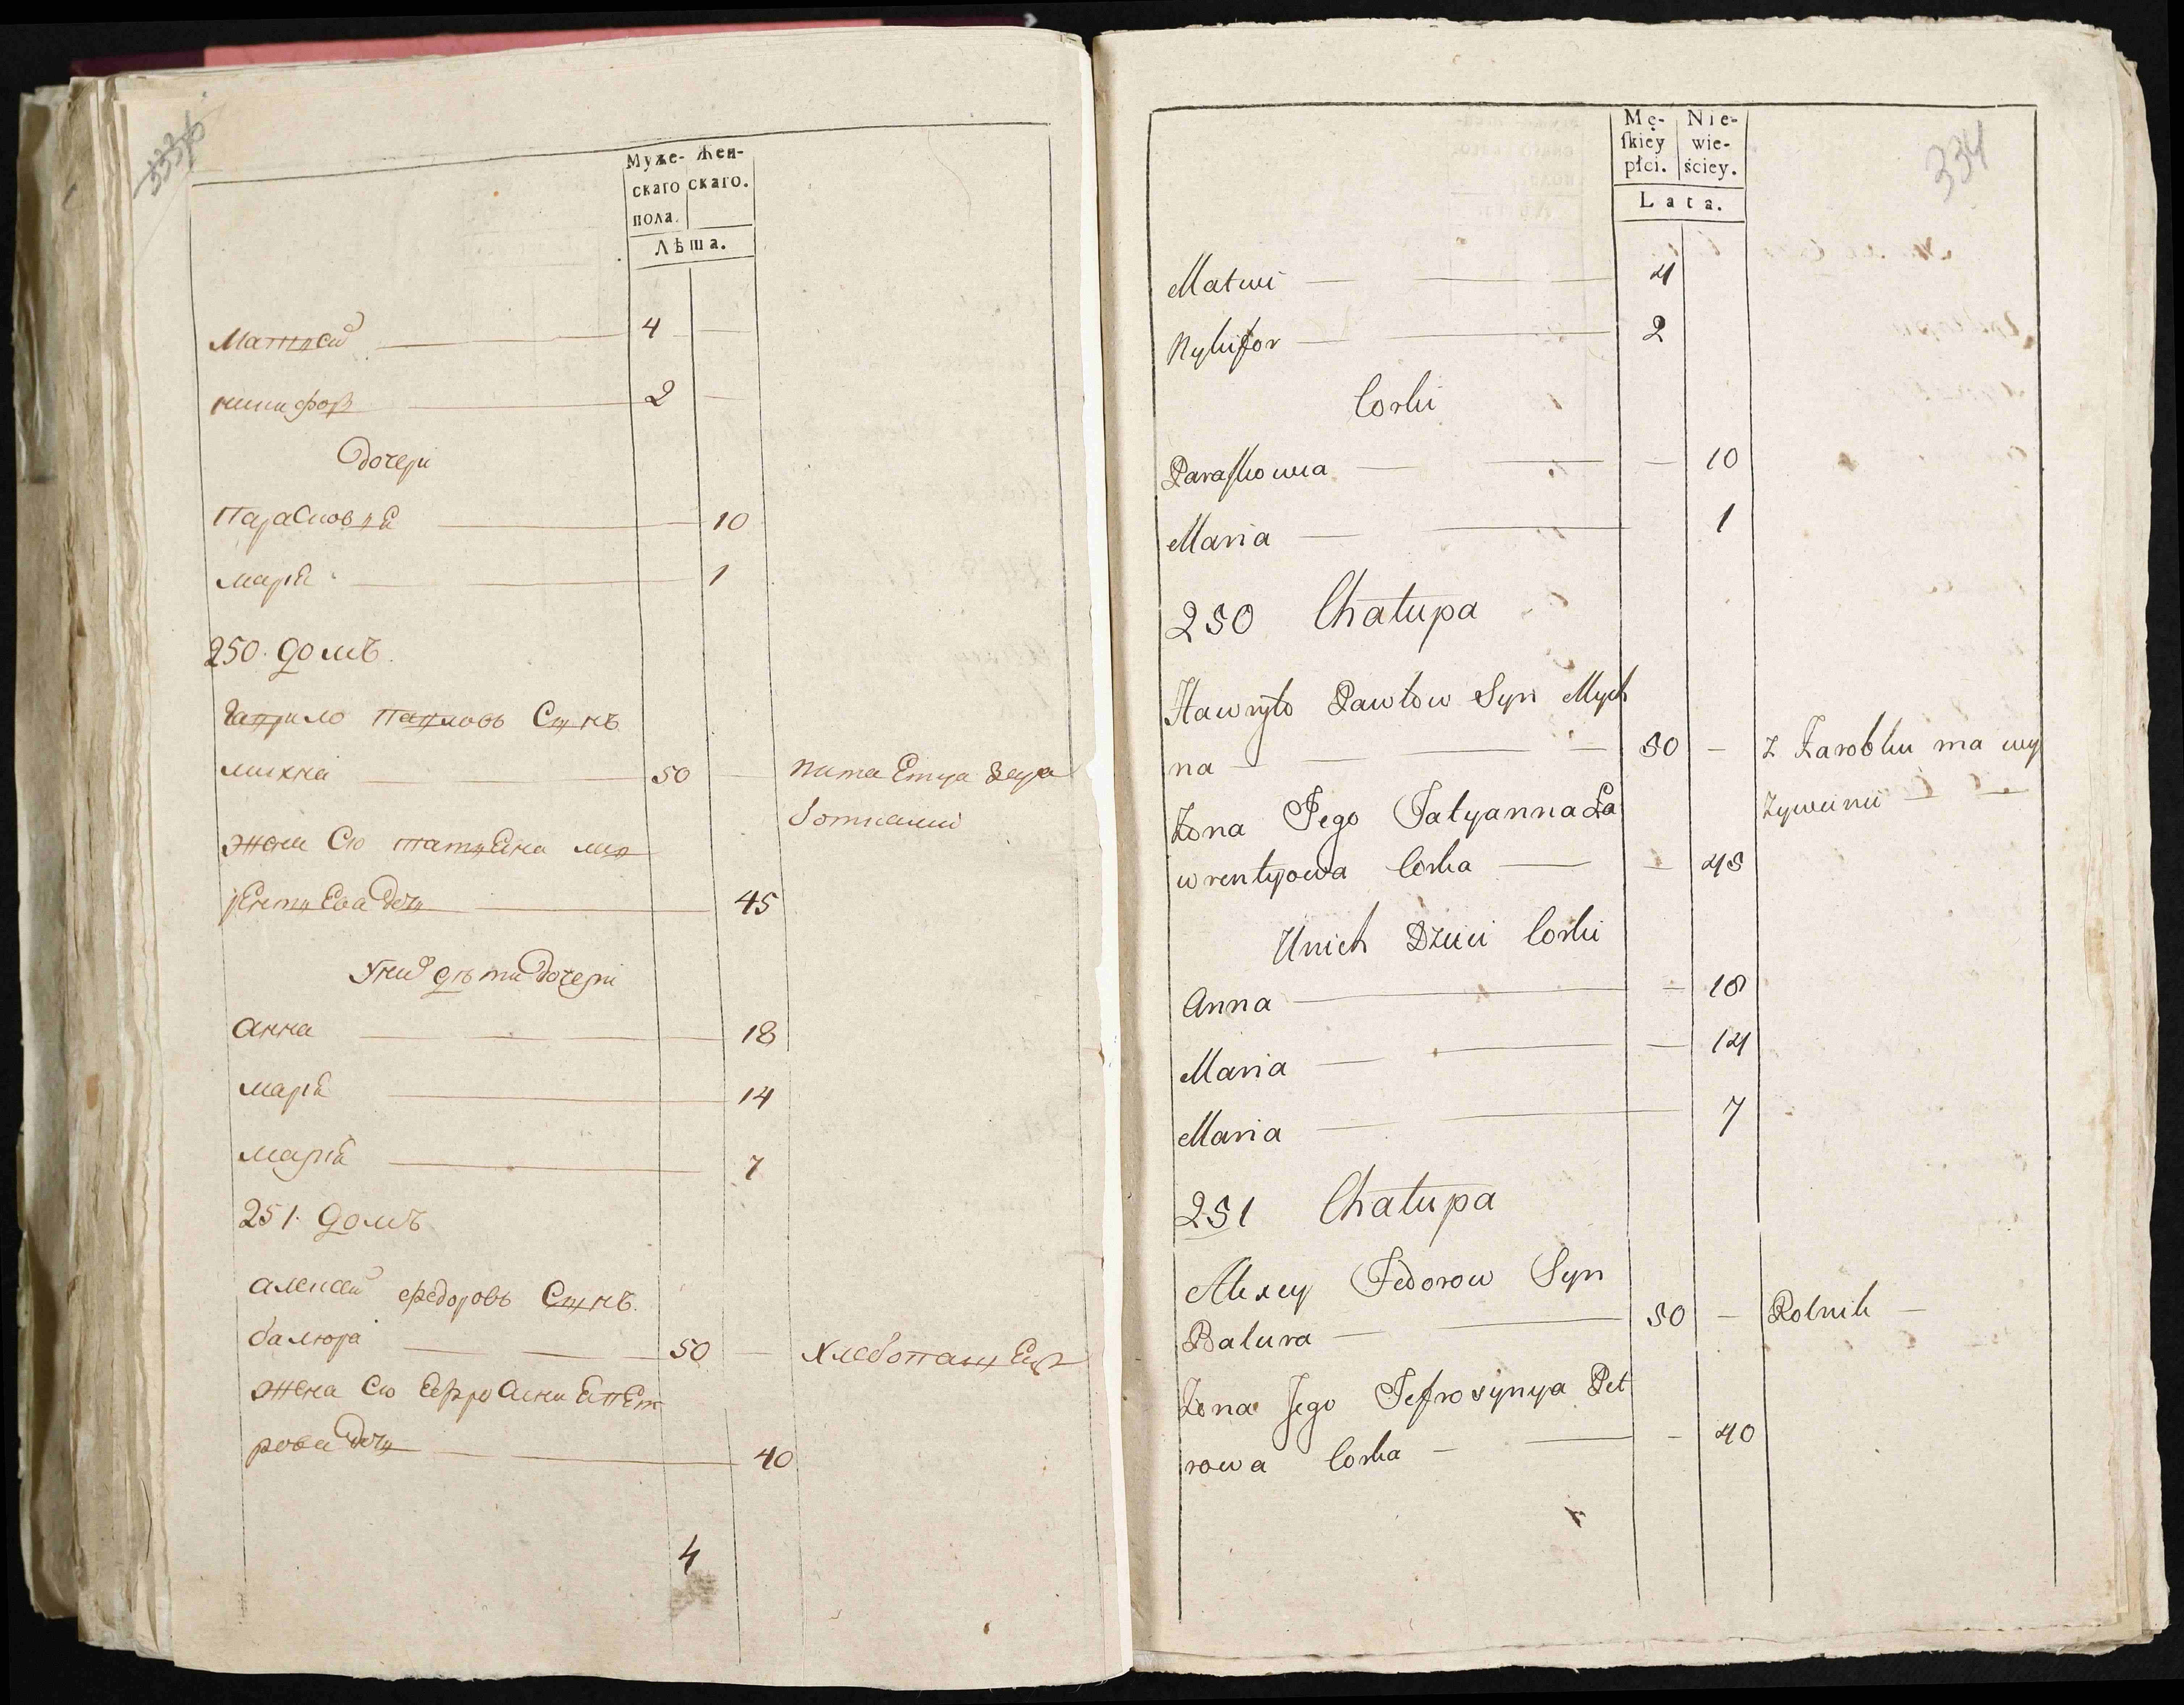 333об
Муже- Жен-
скаго скаго.
пола.
Лѣта.
Матвей 4
никифор 2
дочери
Парасковия 10
мария 1
250. домъ.
Гаврило Павловъ Сынъ
михна 50 питаетца зара
ботками
жена Его татияна лав
рентиева дочь 45
У них дѣти дочери
анна 18
мария 14
мария 7
251. домъ
алексей федоровъ Сынъ.
балюра 50 хлебопашец
жена Его Ефросиния Пет
рова дочь 40
4
334
Mę- Nie-
ſkiey wie-
płci. ściey.
Lata.
Matwi 4
Nykifor 2
Corki
Paraſkowia 10
Maria 1
250 Chałupa
Hawryło Pawłow Syn Mych
na 50 z Zarobku ma wy
Zona Jego Tatyanna La
żywieni
wrentyowa Corka 45
U nich Dzieci Corki
Anna 18
Maria 14
Maria 7
251 Chałupa
Alexey Fedorow Syn
Balura 50 Rolnik
Zona Jego Jefrosynya Pet
rowa Corka 40